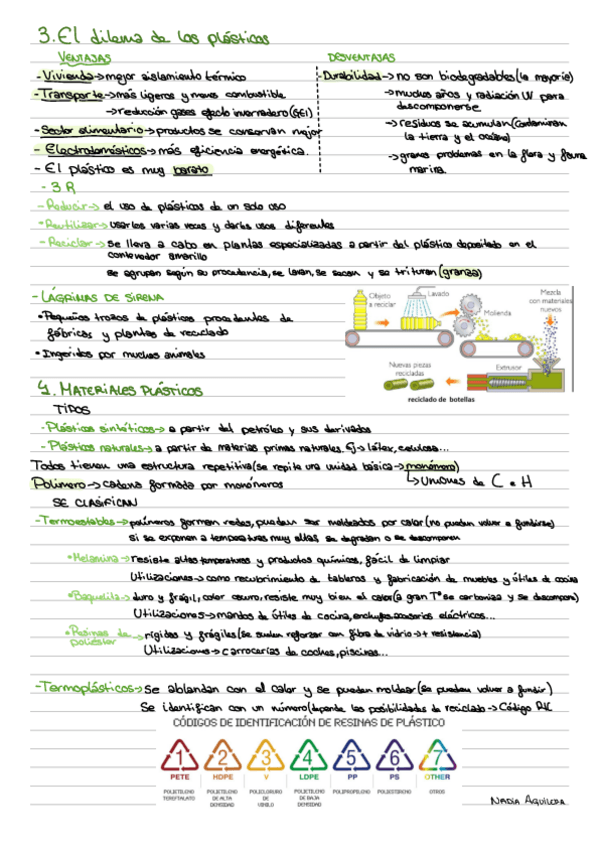 3. El dilema de los plásticos
VENTAJAS
DESVENTAJAS
- Vivienda → mejor aislamiento térmico
- Transporte → más ligeros y menos combustible
→ reducción gases efecto invernadero (GEI)
- Sector alimentario → productos se conservan mejor
- Electrodomésticos → más eficiencia energética.
- El plástico es muy barato
- Durabilidad → no son biodegradables (la mayoría)
→ muchos años y radiación UV para
descomponerse
→ residuos se acumulan (contaminan
la tierra y el océano)
→ graves problemas en la flora y fauna
marina.
- 3 R
- Reducir → el uso de plásticos de un solo uso
- Reutilizar → usarlos varias veces y darles usos diferentes
- Reciclar → se lleva a cabo en plantas especializadas a partir del plástico depositado en el
contenedor amarillo
se agrupan según su procedencia, se lavan, se secan y se trituran (granza)
- LÁGRIMAS DE SIRENA
• Pequeños trozos de plásticos procedentes de
fábricas y plantas de reciclado
• Ingeridos por muchos animales
Objeto
a reciclar
Lavado
Molienda
Mezcla
con materiales
nuevos
Nuevas piezas
recicladas
Extrusor
reciclado de botellas
4. MATERIALES PLÁSTICOS
TIPOS
- Plásticos sintéticos → a partir del petróleo y sus derivados
- Plásticos naturales → a partir de materias primas naturales. Ej → látex, celulosa...
Todos tienen una estructura repetitiva (se repite una unidad básica → monómero)
Polímero → cadena formada por monómeros
↳ Uniones de C e H
SE CLASIFICAN
- Termoestables → polímeros forman redes, pueden ser moldeados por calor (no pueden volver a fundirse)
si se exponen a temperaturas muy altas se degradan o se descomponen
• Melamina → resiste altas temperaturas y productos químicos, fácil de limpiar
Utilizaciones → como recubrimiento de tableros y fabricación de muebles y útiles de cocina
• Baquelita → duro y frágil, color oscuro, resiste muy bien el calor (a gran Tª se carboniza y se descompone)
Utilizaciones → mandos de útiles de cocina, enchufes, accesorios eléctricos...
• Resinas de
poliéster
→ rígidas y frágiles (se suelen reforzar con fibra de vidrio → + resistencia)
Utilizaciones → carrocerías de coches, piscinas...
- Termoplásticos → Se ablandan con el calor y se pueden moldear (se pueden volver a fundir)
Se identifican con un número (depende las posibilidades de reciclado → Código RIC
CÓDIGOS DE IDENTIFICACIÓN DE RESINAS DE PLÁSTICO
1 2 3 4 5 6 7
PETE HDPE V LDPE PP PS OTHER
POLIETILENO
TEREFTALATO
POLIETILENO
DE ALTA
DENSIDAD
POLICLORURO
DE
VINILO
POLIETILENO
DE BAJA
DENSIDAD
POLIPROPILENO
POLIESTIRENO
OTROS
NADIA AGUILERA